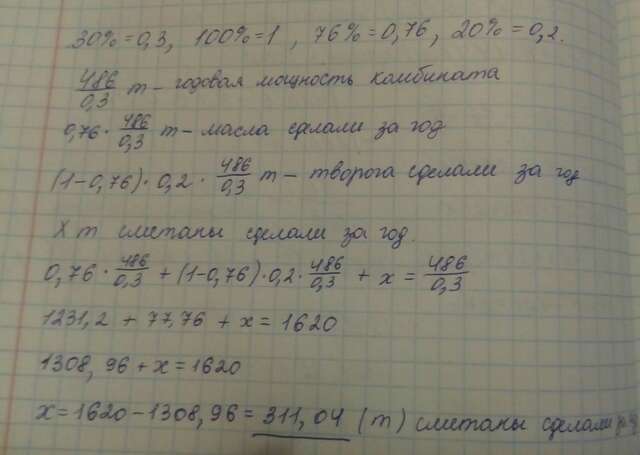 30%=0,3, 100%=1, 76%=0,76, 20%=0,2.
486/0,3 т – годовая мощность комбината
0,76 · 486/0,3 т – масла сделали за год
(1-0,76) · 0,2 · 486/0,3 т – творога сделали за год
X т сметаны сделали за год.
0,76 · 486/0,3 + (1-0,76) · 0,2 · 486/0,3 + x = 486/0,3
1231,2 + 77,76 + x = 1620
1308,96 + x = 1620
x = 1620 – 1308,96 = 311,04 (т) сметаны сделали